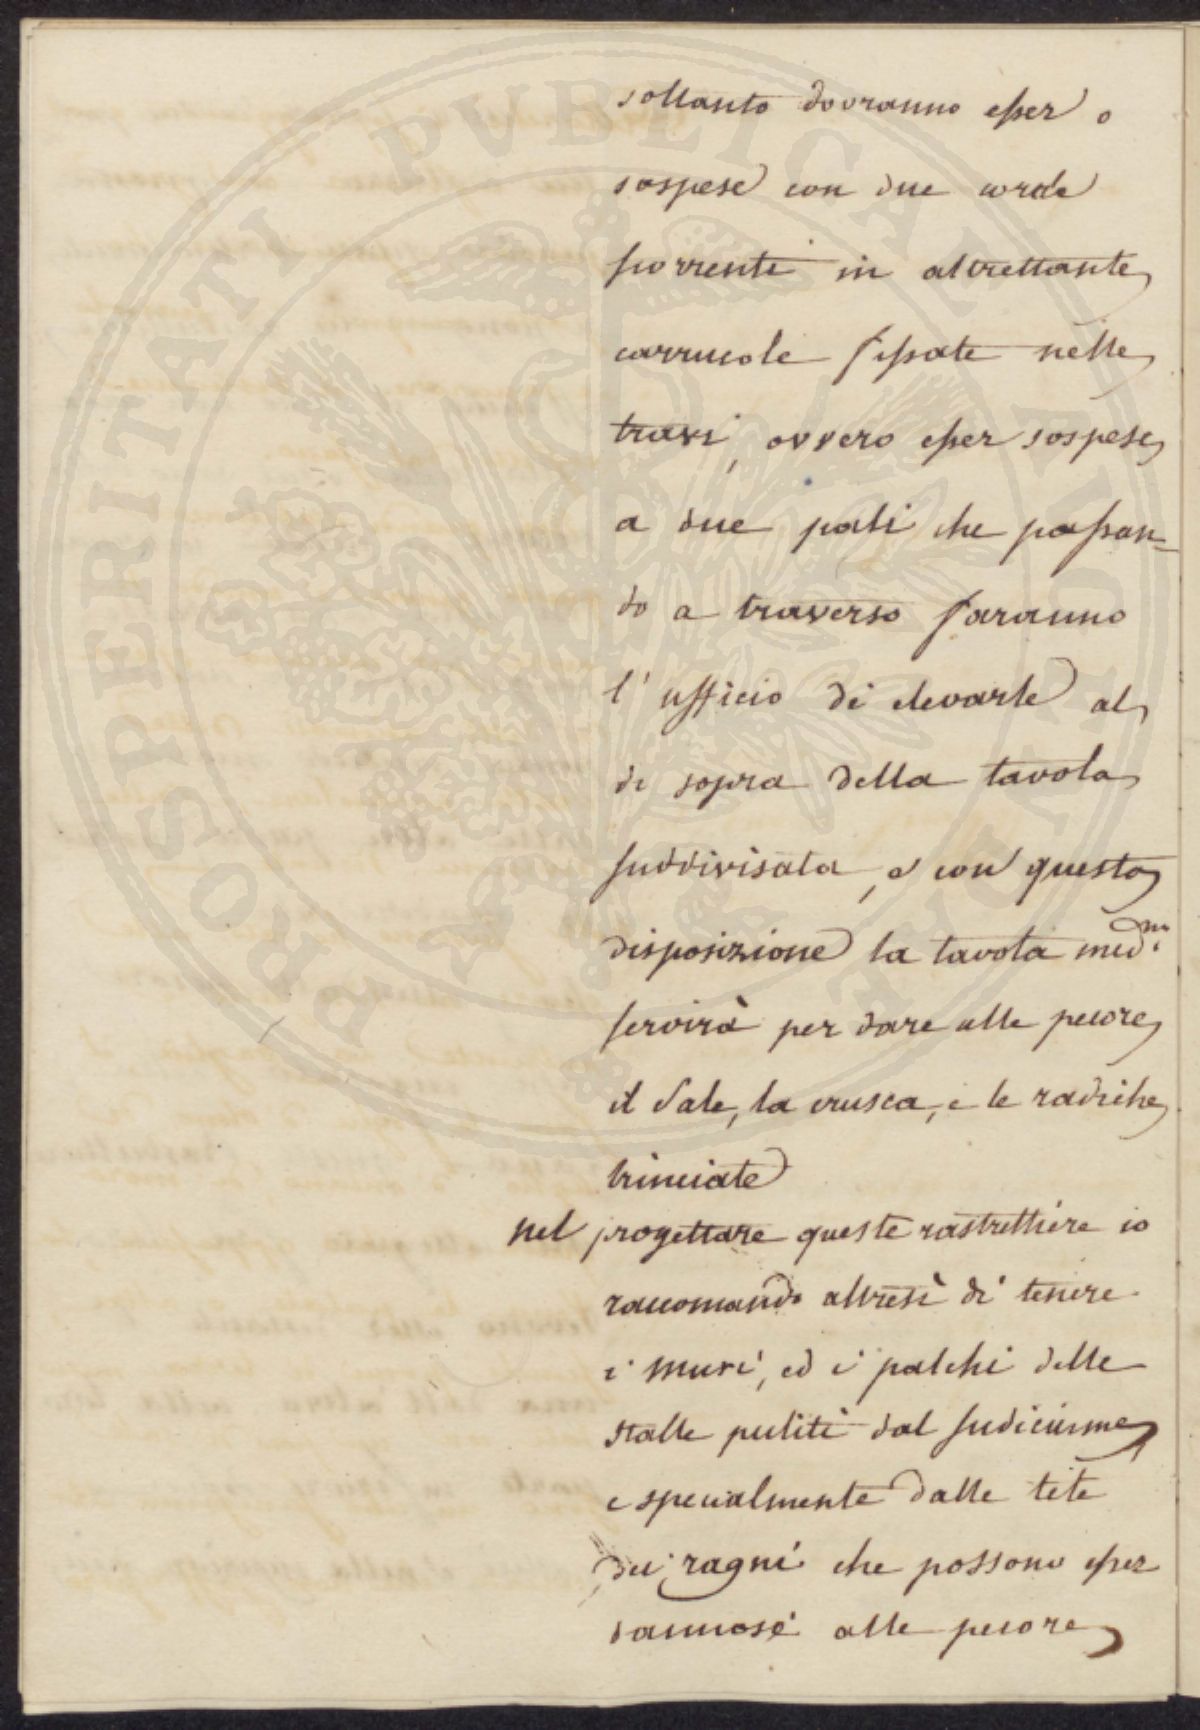 soltanto dovranno esser o
sospese con due corde
scorrenti in altrettante
carrucole fissate nelle
travi, ovvero esser sospese
a due pali che passan=
do a traverso faranno
l'ufficio di elevarle al
di sopra della tavola
suddivisata, e con questa
disposizione la tavola med.ma
servirà per dare alle pecore
il Sale, la crusca, e le radiche
trinciate
nel progettare queste rastrelliere io
raccomando altresì di tenere
i muri, ed i palchi delle
stalle puliti dal sudiciume
e specialmente dalle tele
dei ragni che possono esser
dannose alle pecore
PROSPERITATI PUBLICAE AUGENDAE